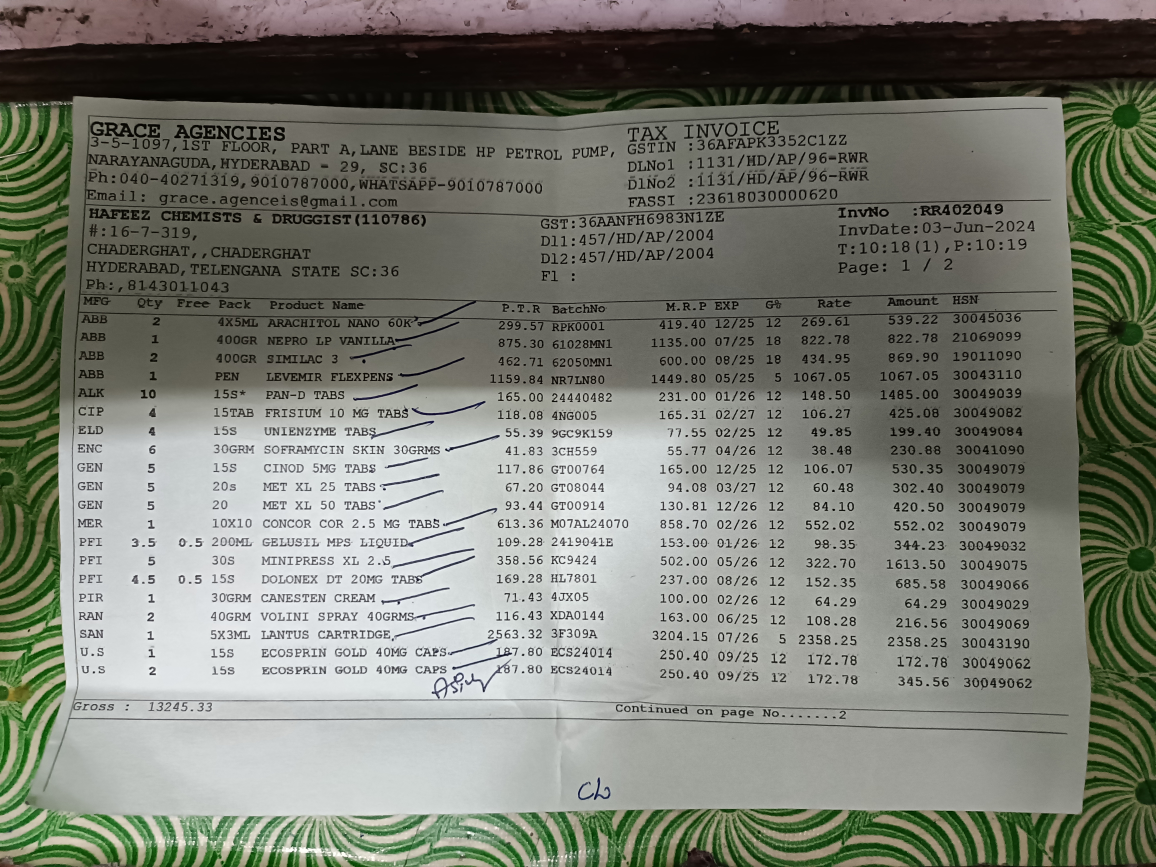 GRACE AGENCIES
3-5-1097,1ST FLOOR, PART A,LANE BESIDE HP PETROL PUMP,
NARAYANAGUDA,HYDERABAD - 29, SC:36
Ph:040-40271319,9010787000,WHATSAPP-9010787000
Email: grace.agenceis@gmail.com
TAX INVOICE
GSTIN :36AFAPK3352C1ZZ
DLNo1 :1131/HD/AP/96-RWR
DlNo2 :1131/HD/AP/96-RWR
FASSI :23618030000620
HAFEEZ CHEMISTS & DRUGGIST(110786)
#:16-7-319,
CHADERGHAT,,CHADERGHAT
HYDERABAD,TELENGANA STATE SC:36
Ph:,8143011043
GST:36AANFH6983N1ZE
Dl1:457/HD/AP/2004
Dl2:457/HD/AP/2004
Fl :
InvNo :RR402049
InvDate:03-Jun-2024
T:10:18(1),P:10:19
Page: 1 / 2
MFG Qty Free Pack Product Name P.T.R BatchNo M.R.P EXP G% Rate Amount HSN
ABB 2 4X5ML ARACHITOL NANO 60K 299.57 RPK0001 419.40 12/25 12 269.61 539.22 30045036
ABB 1 400GR NEPRO LP VANILLA 875.30 61028MN1 1135.00 07/25 18 822.78 822.78 21069099
ABB 2 400GR SIMILAC 3 462.71 62050MN1 600.00 08/25 18 434.95 869.90 19011090
ABB 1 PEN LEVEMIR FLEXPENS 1159.84 NR7LN80 1449.80 05/25 5 1067.05 1067.05 30043110
ALK 10 15S* PAN-D TABS 165.00 24440482 231.00 01/26 12 148.50 1485.00 30049039
CIP 4 15TAB FRISIUM 10 MG TABS 118.08 4NG005 165.31 02/27 12 106.27 425.08 30049082
ELD 4 15S UNIENZYME TABS 55.39 9GC9K159 77.55 02/25 12 49.85 199.40 30049084
ENC 6 30GRM SOFRAMYCIN SKIN 30GRMS 41.83 3CH559 55.77 04/26 12 38.48 230.88 30041090
GEN 5 15S CINOD 5MG TABS 117.86 GT00764 165.00 12/25 12 106.07 530.35 30049079
GEN 5 20s MET XL 25 TABS 67.20 GT08044 94.08 03/27 12 60.48 302.40 30049079
GEN 5 20 MET XL 50 TABS 93.44 GT00914 130.81 12/26 12 84.10 420.50 30049079
MER 1 10X10 CONCOR COR 2.5 MG TABS 613.36 M07AL24070 858.70 02/26 12 552.02 552.02 30049079
PFI 3.5 0.5 200ML GELUSIL MPS LIQUID 109.28 2419041E 153.00 01/26 12 98.35 344.23 30049032
PFI 5 30S MINIPRESS XL 2.5 358.56 KC9424 502.00 05/26 12 322.70 1613.50 30049075
PFI 4.5 0.5 15S DOLONEX DT 20MG TABS 169.28 HL7801 237.00 08/26 12 152.35 685.58 30049066
PIR 1 30GRM CANESTEN CREAM 71.43 4JX05 100.00 02/26 12 64.29 64.29 30049029
RAN 2 40GRM VOLINI SPRAY 40GRMS 116.43 XDA0144 163.00 06/25 12 108.28 216.56 30049069
SAN 1 5X3ML LANTUS CARTRIDGE 2563.32 3F309A 3204.15 07/26 5 2358.25 2358.25 30043190
U.S 1 15S ECOSPRIN GOLD 40MG CAPS 187.80 ECS24014 250.40 09/25 12 172.78 172.78 30049062
U.S 2 15S ECOSPRIN GOLD 40MG CAPS 187.80 ECS24014 250.40 09/25 12 172.78 345.56 30049062
Gross : 13245.33
Continued on page No.......2